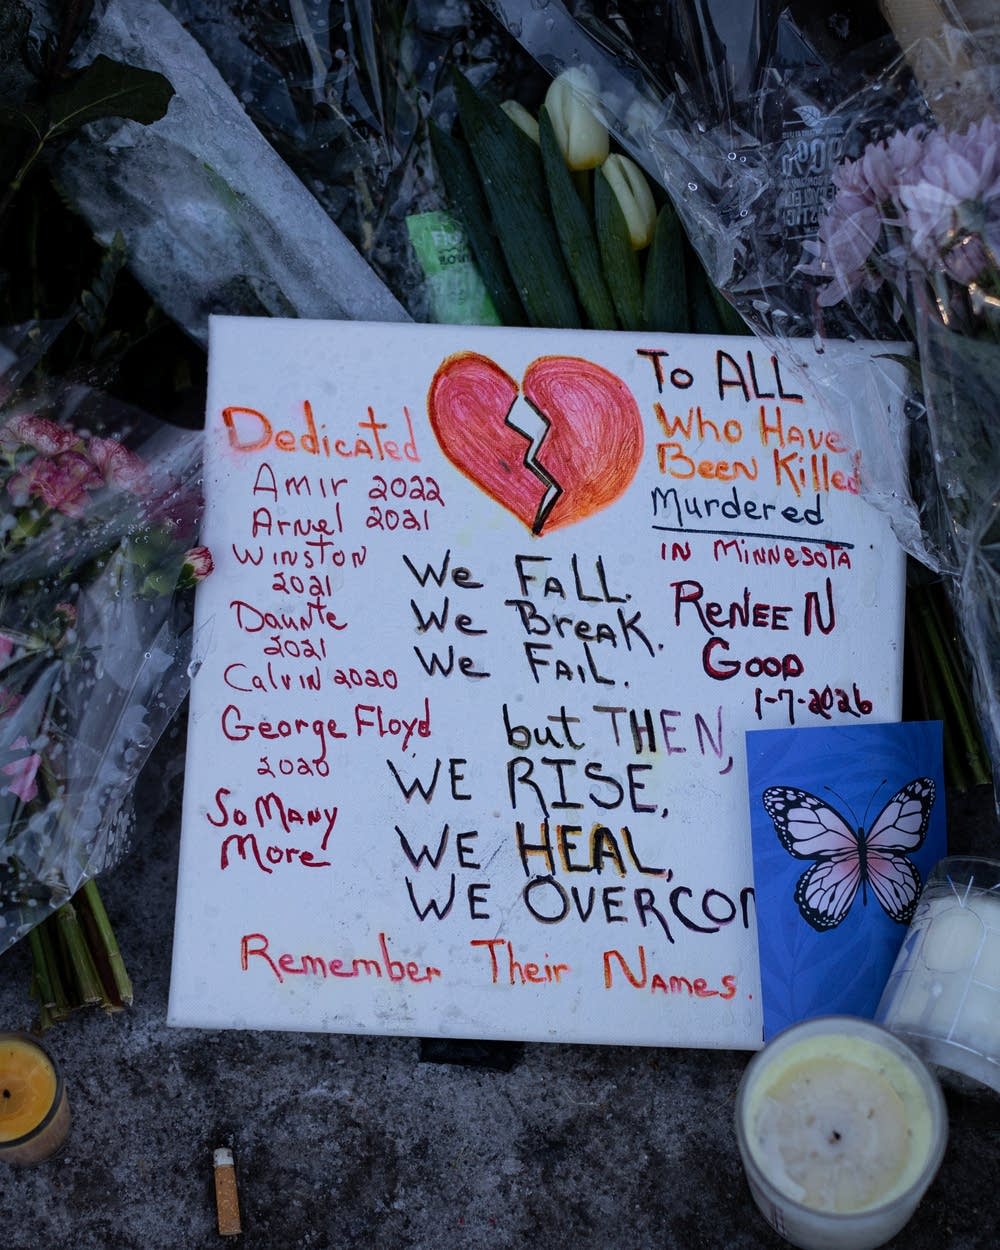 Dedicated
To ALL
Who Have
Been Killed
Murdered
IN MINNESOTA
RENEE N
GOOD
1-7-2026
Amir 2022
Arnel 2021
WINSTON
2021
Daunte
2021
Calvin 2020
George Floyd
2020
So MANY
More
We FALL.
We BreaK.
We FAIL.
but THEN,
WE RISE,
WE HEAL,
WE OVERCOM
Remember Their Names.
90%